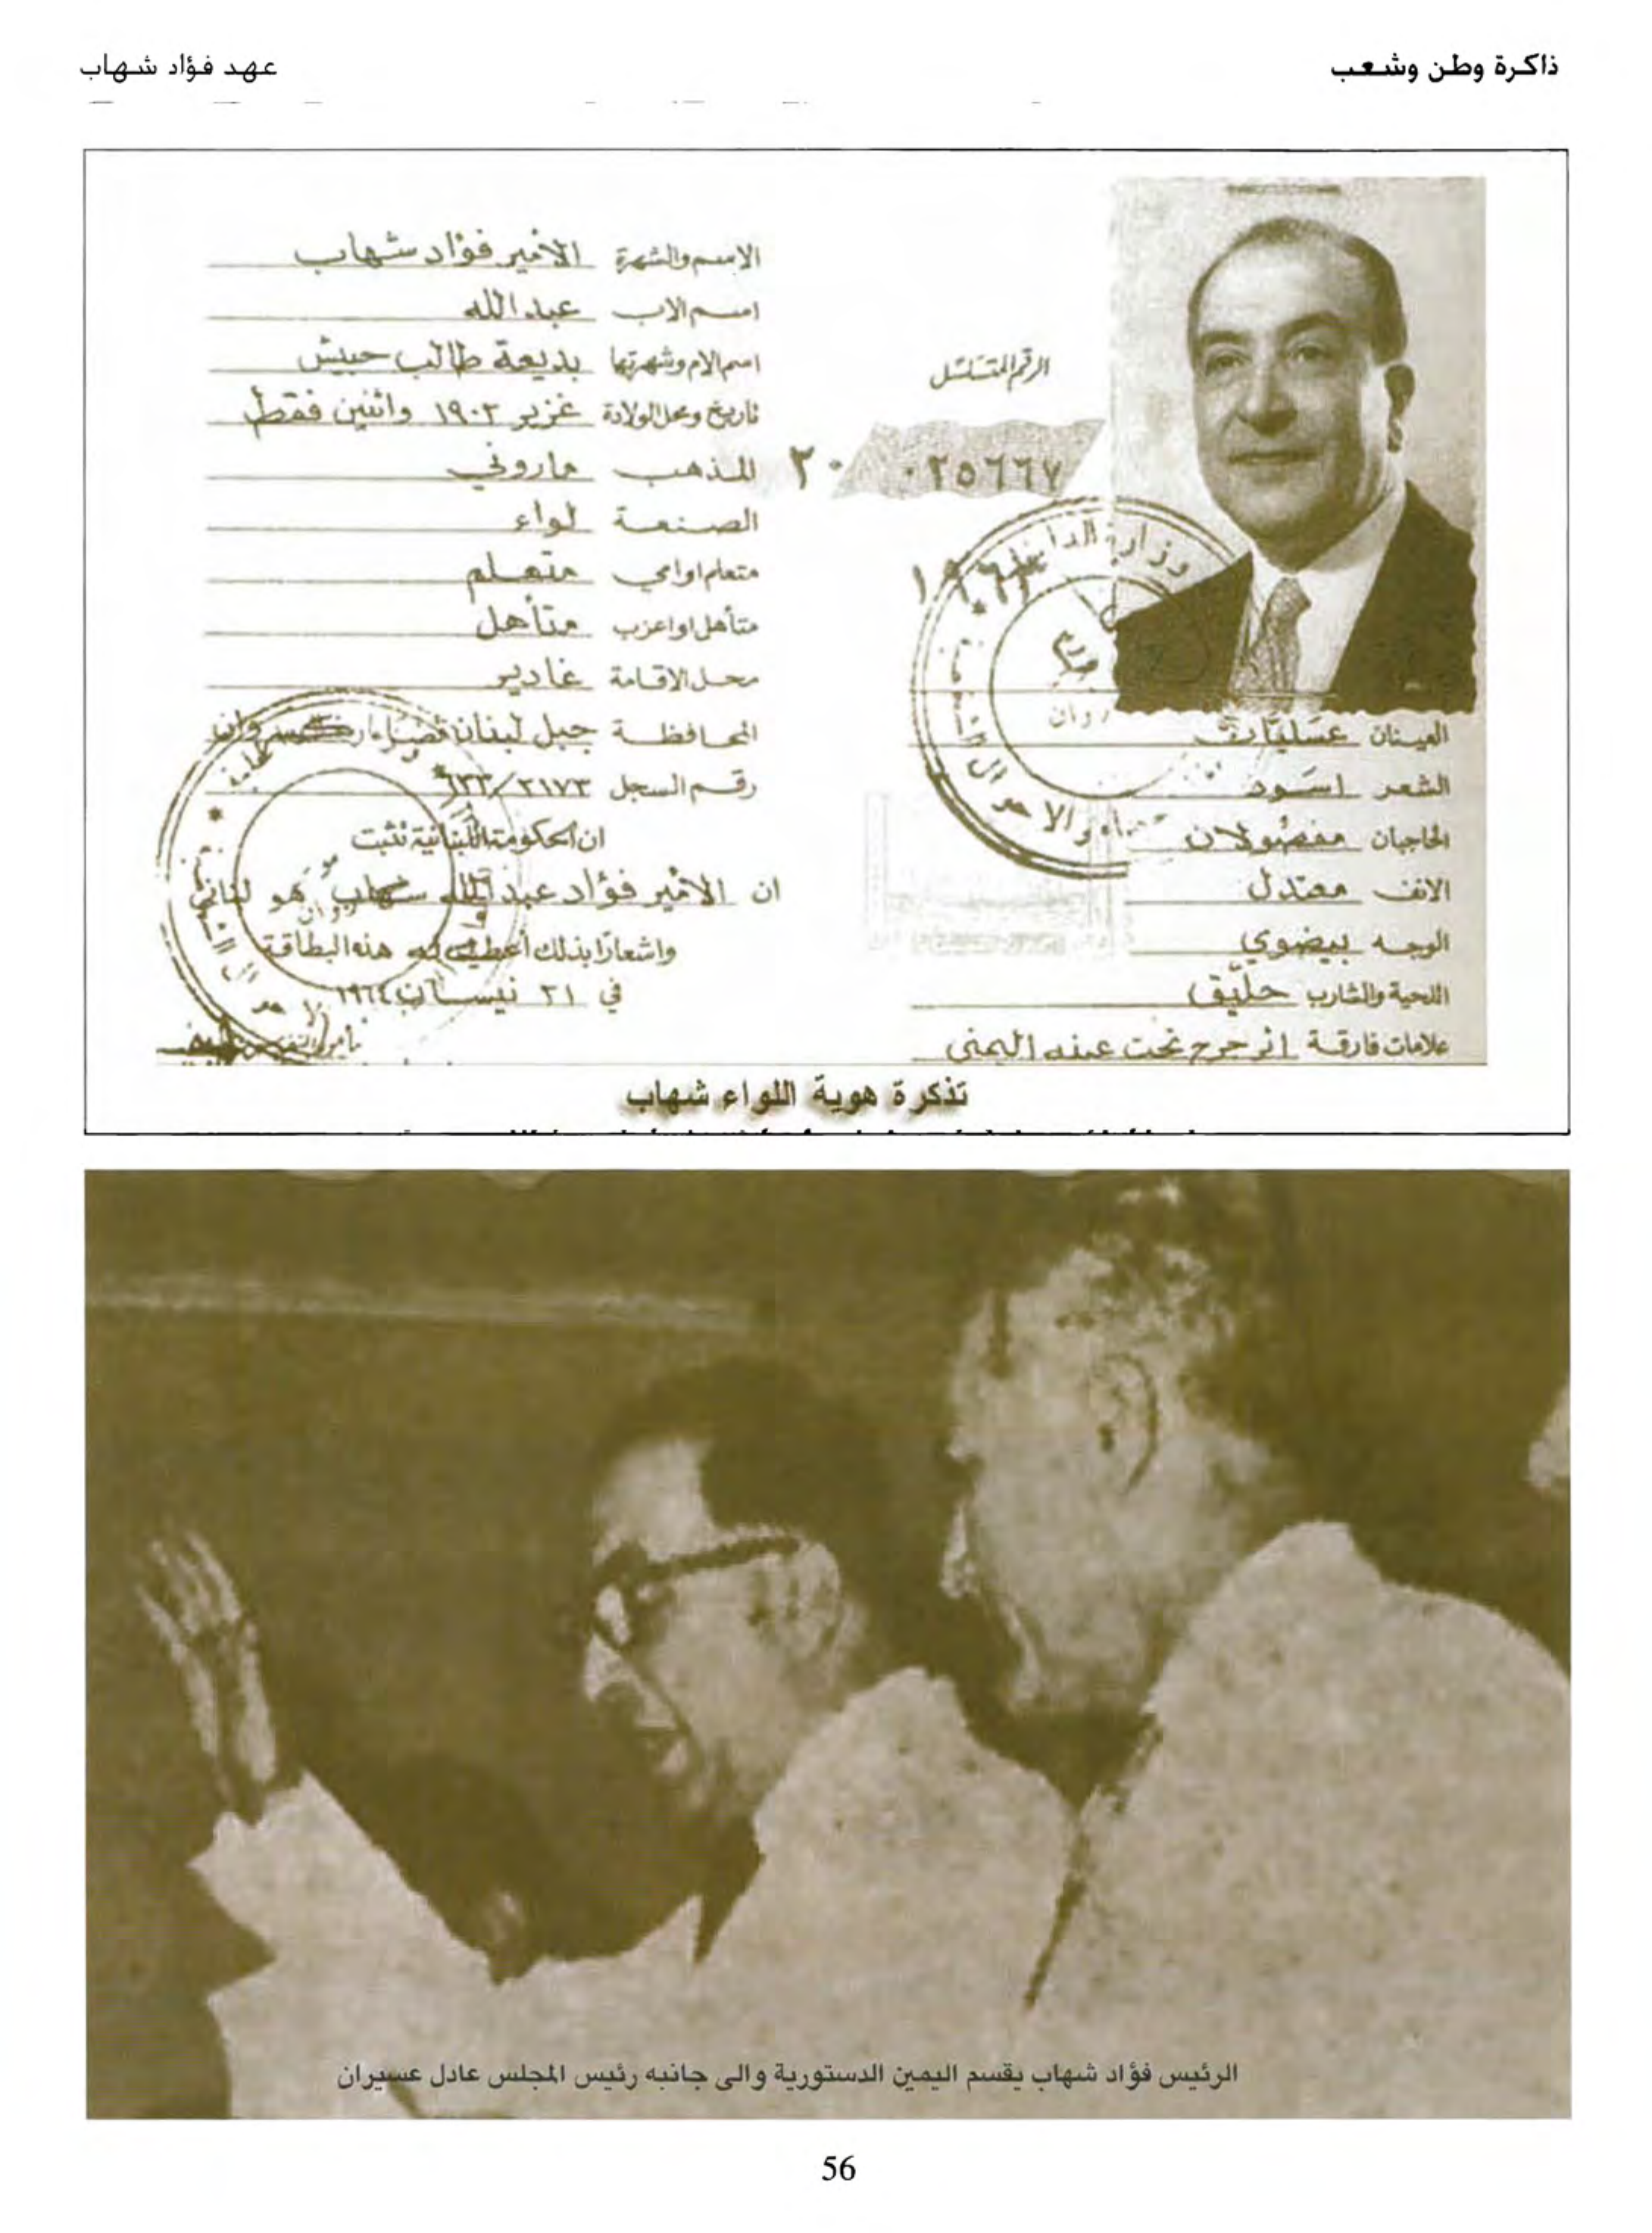 ذاكرة وطن وشعب
عهد فؤاد شهاب
الاسم والشهرة الأمير فؤاد شهاب
اسم الاب عبدالله
اسم الام وشهرتها بديعة طالب حبيش
تاريخ ومحل الولادة غزير ١٩٠٢ واثنين فقط
المذهب ماروني
الصنعة لواء
متعلم او امي متعلم
متأهل او اعزب متأهل
محل الاقامة غادير
المحافظة جبل لبنان قضاء كسروان
رقم السجل
ان الحكومة اللبنانية تثبت
ان الأمير فؤاد عبدالله شهاب هو لبناني
واشعارًا بذلك أعطيت له هذه البطاقة
في ٢١ نيسان ١٩٦٤
الرقم المتسلسل
٢٠ ٠٢٥٦٦٧
وزارة الداخلية
العينان عسليتان
الشعر اسود
الحاجبان مفصولان
الانف معتدل
الوجه بيضوي
اللحية والشارب حليق
علامات فارقة اثر جرح تحت عينه اليمنى
تذكرة هوية اللواء شهاب
الرئيس فؤاد شهاب يقسم اليمين الدستورية والى جانبه رئيس المجلس عادل عسيران
56